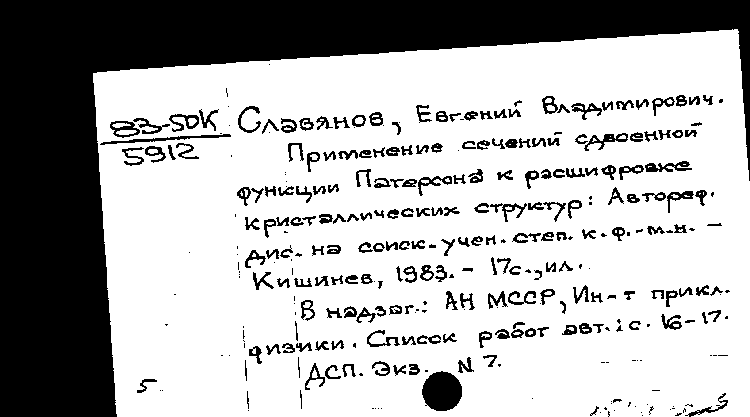 83-50К
5912
Славянов, Евгений Владимирович.
Применение сечений сдвоенной
функции Патерсона к расшифровке
кристаллических структур: Автореф.
дис. на соиск. учен. степ. к.ф.-м.н. –
Кишинев, 1983. – 17с., ил.
В надзаг.: АН МССР, Ин-т прикл.
физики. Список работ авт.: с. 16-17.
ДСП. Экз. N 7.
5